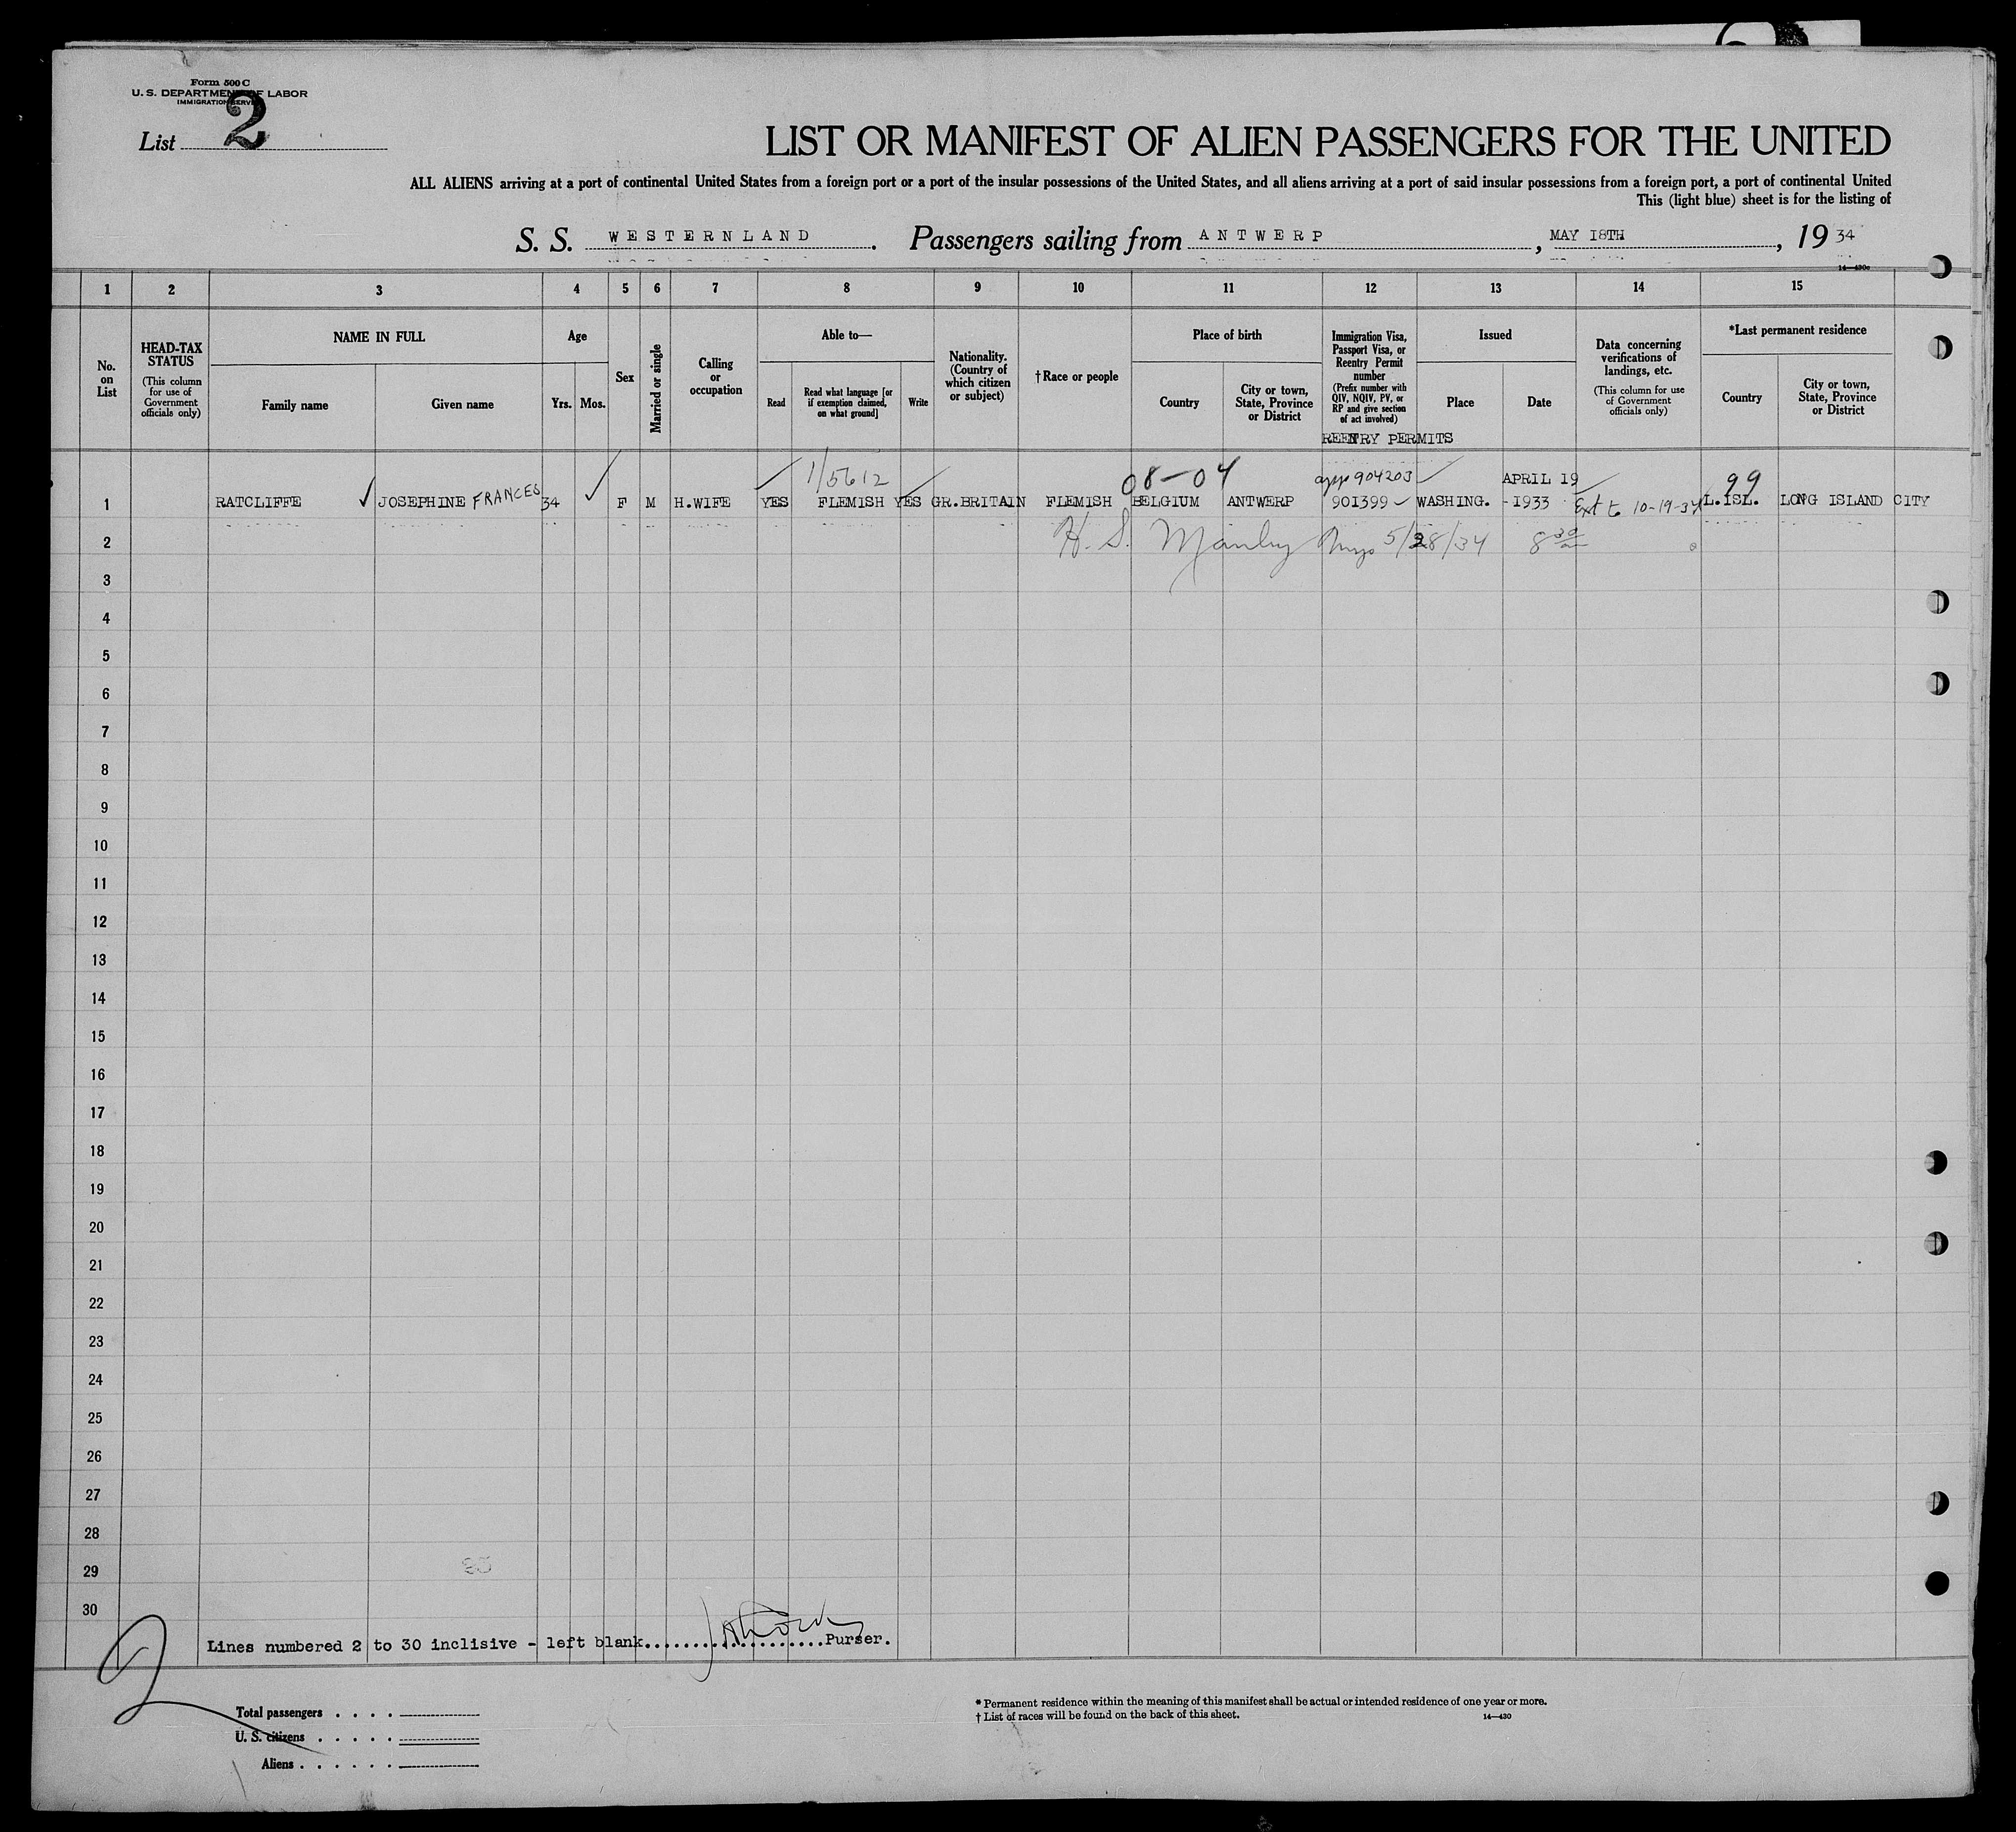 Form 500 C
U. S. DEPARTMENT OF LABOR
IMMIGRATION SERVICE
List 2
LIST OR MANIFEST OF ALIEN PASSENGERS FOR THE UNITED
ALL ALIENS arriving at a port of continental United States from a foreign port or a port of the insular possessions of the United States, and all aliens arriving at a port of said insular possessions from a foreign port, a port of continental United
This (light blue) sheet is for the listing of
S. S. WESTERNLAND. Passengers sailing from ANTWERP, MAY 18TH, 19 34
14—430c
1 2 3 4 5 6 7 8 9 10 11 12 13 14 15
No. on List
HEAD-TAX STATUS
(This column for use of Government officials only)
NAME IN FULL
Family name
Given name
Age
Yrs.
Mos.
Sex
Married or single
Calling or occupation
Able to—
Read
Read what language [or if exemption claimed, on what ground]
Write
Nationality. (Country of which citizen or subject)
†Race or people
Place of birth
Country
City or town, State, Province or District
Immigration Visa, Passport Visa, or Reentry Permit number
(Prefix number with QIV, NQIV, PV, or RP and give section of act involved)
REENTRY PERMITS
Issued
Place
Date
Data concerning verifications of landings, etc.
(This column for use of Government officials only)
*Last permanent residence
Country
City or town, State, Province or District
1/5612 08-04 app 904203 APRIL 19 99
1 RATCLIFFE JOSEPHINE FRANCES 34 F M H.WIFE YES FLEMISH YES GR.BRITAIN FLEMISH BELGIUM ANTWERP 901399 WASHING. -1933 Ext to 10-19-34 L.ISL. LONG ISLAND CITY
2 H. S. Manley 5/28/34 8 30
3
4
5
6
7
8
9
10
11
12
13
14
15
16
17
18
19
20
21
22
23
24
25
26
27
28
29
30
Lines numbered 2 to 30 inclisive - left blank....................Purser.
2
Total passengers . . . .
U. S. citizens . . . . .
Aliens . . . . . .
* Permanent residence within the meaning of this manifest shall be actual or intended residence of one year or more.
† List of races will be found on the back of this sheet.
14—430